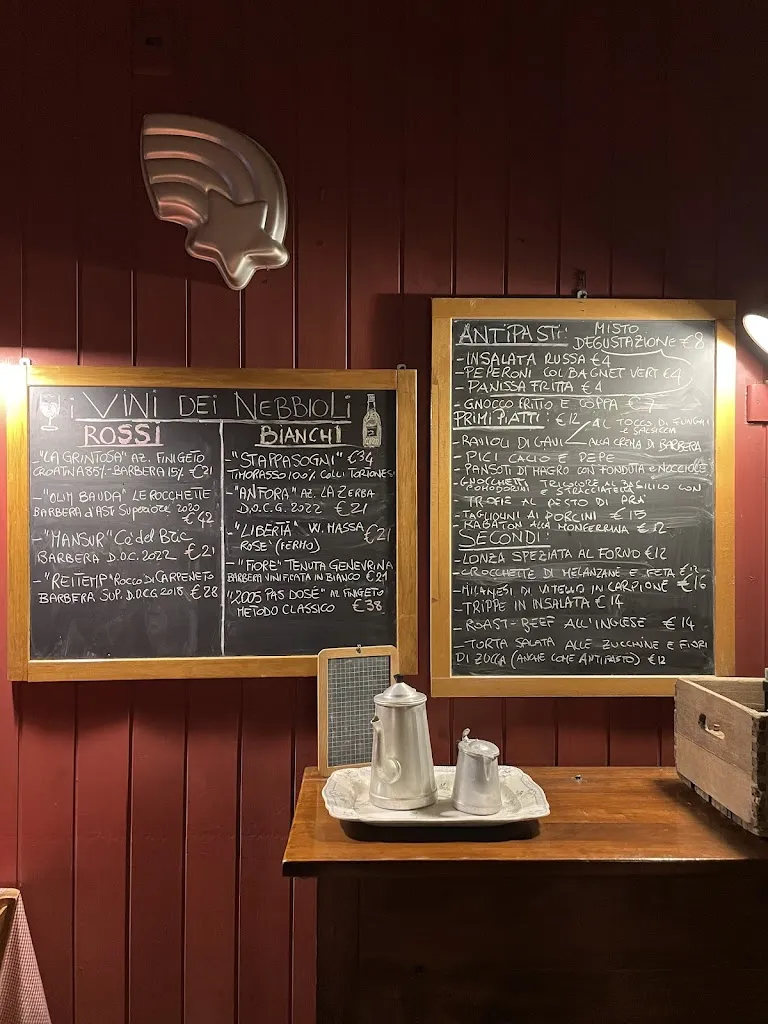 i VINI DEI NEBBIOLI
ROSSI
"LA GRINTOSA" AZ. FINIGETO
CROATINA 85% - BARBERA 15% €21
- "OLIM BAUDA" LE ROCCHETTE
BARBERA d'ASTI SUPERIORE 2020
€42
- "MANSUR" Ca' del Bric
BARBERA D.O.C. 2022 €21
- "REITEMP" ROCCO DI CARPENETO
BARBERA SUP. D.O.C.G 2018 €28
BIANCHI
- "STAPPASOGNI" €34
TIMORASSO 100% COLLI TORTONESI
- "ANFORA" AZ. LA ZERBA
D.O.C.G. 2022 €21
- "LIBERTÀ" W. MASSA €21
ROSE' (FERMO)
- "FIORE" TENUTA GENEVRINA
BARBERA VINIFICATA IN BIANCO €21
"2005 PAS DOSÉ" AZ. FINIGETO
METODO CLASSICO €38
ANTIPASTI: MISTO
DEGUSTAZIONE €8
- INSALATA RUSSA €4
- PEPERONI COL BAGNET VERT €4
- PANISSA FRITTA €4
- GNOCCO FRITTO E COPPA €7
PRIMI PIATTI: €12 AL TOCCO DI FUNGHI
E SALSICCIA
- RAVIOLI DI GAVI ALLA CREMA DI BARBERA
- PICI CACIO E PEPE
- PANSOTI DI MAGRO CON FONDUTA e NOCCIOLE
GNOCCHETTI TRICOLORE AL BASILICO CON
POMODORINI E STRACCIATELLA
- TROFIE AL PESTO DI PRA
- TAGLIOLINI AI PORCINI €15
- RABATON ALLA MONFERRINA €12
SECONDI:
- LONZA SPEZIATA AL FORNO €12
- CROCCHETTE DI MELANZANE E FETA €12
- MILANESI DI VITELLO IN CARPIONE €16
- TRIPPE IN INSALATA €14
- ROAST-BEEF ALL'INGLESE €14
- TORTA SALATA ALLE ZUCCHINE E FIORI
DI ZUCCA (ANCHE COME ANTIPASTO) €12